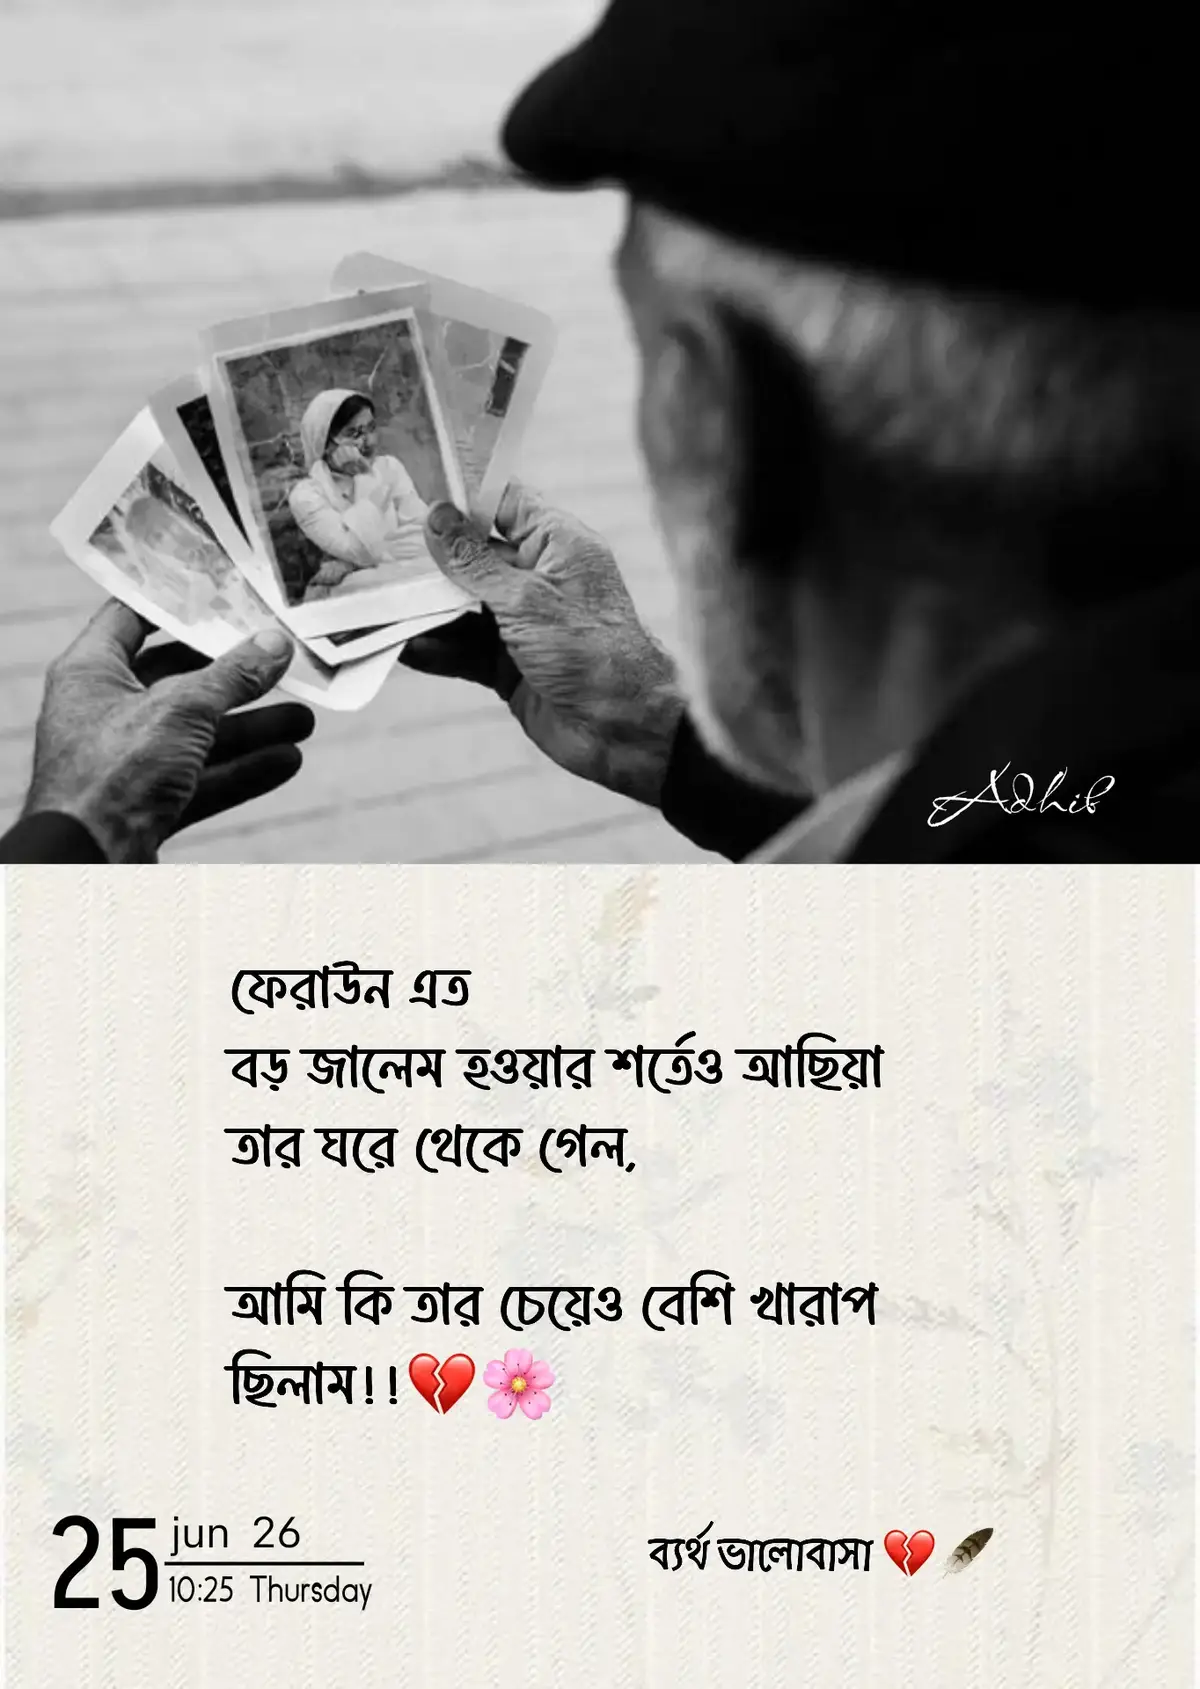 Adhib
ফেরাউন এত
বড় জালেম হওয়ার শর্তেও আছিয়া
তার ঘরে থেকে গেল,
আমি কি তার চেয়েও বেশি খারাপ
ছিলাম!!💔🌸
25 jun 26
10:25 Thursday
ব্যর্থ ভালোবাসা 💔🪶